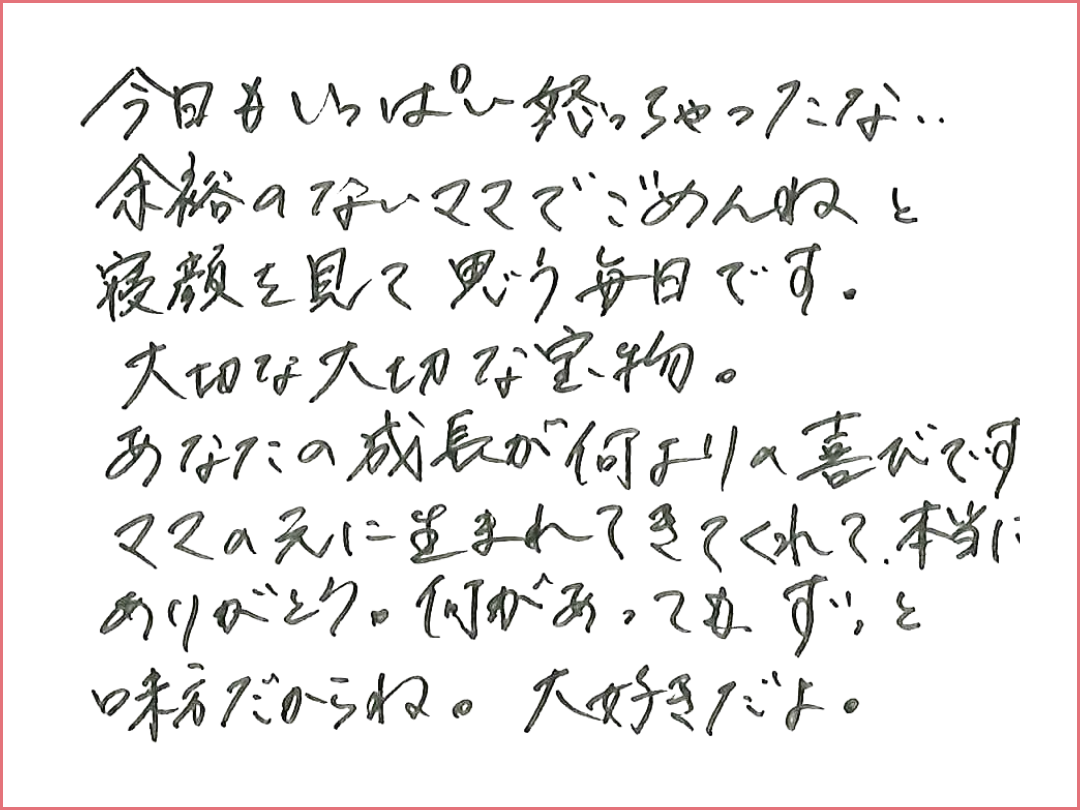 今日もいっぱい怒っちゃったな..
余裕のないママでごめんねと
寝顔を見て思う毎日です。
大切な大切な宝物。
あなたの成長が何よりの喜びです
ママの元に生まれてきてくれて、本当に
ありがとう。何があってもずっと
味方だからね。大好きだよ。